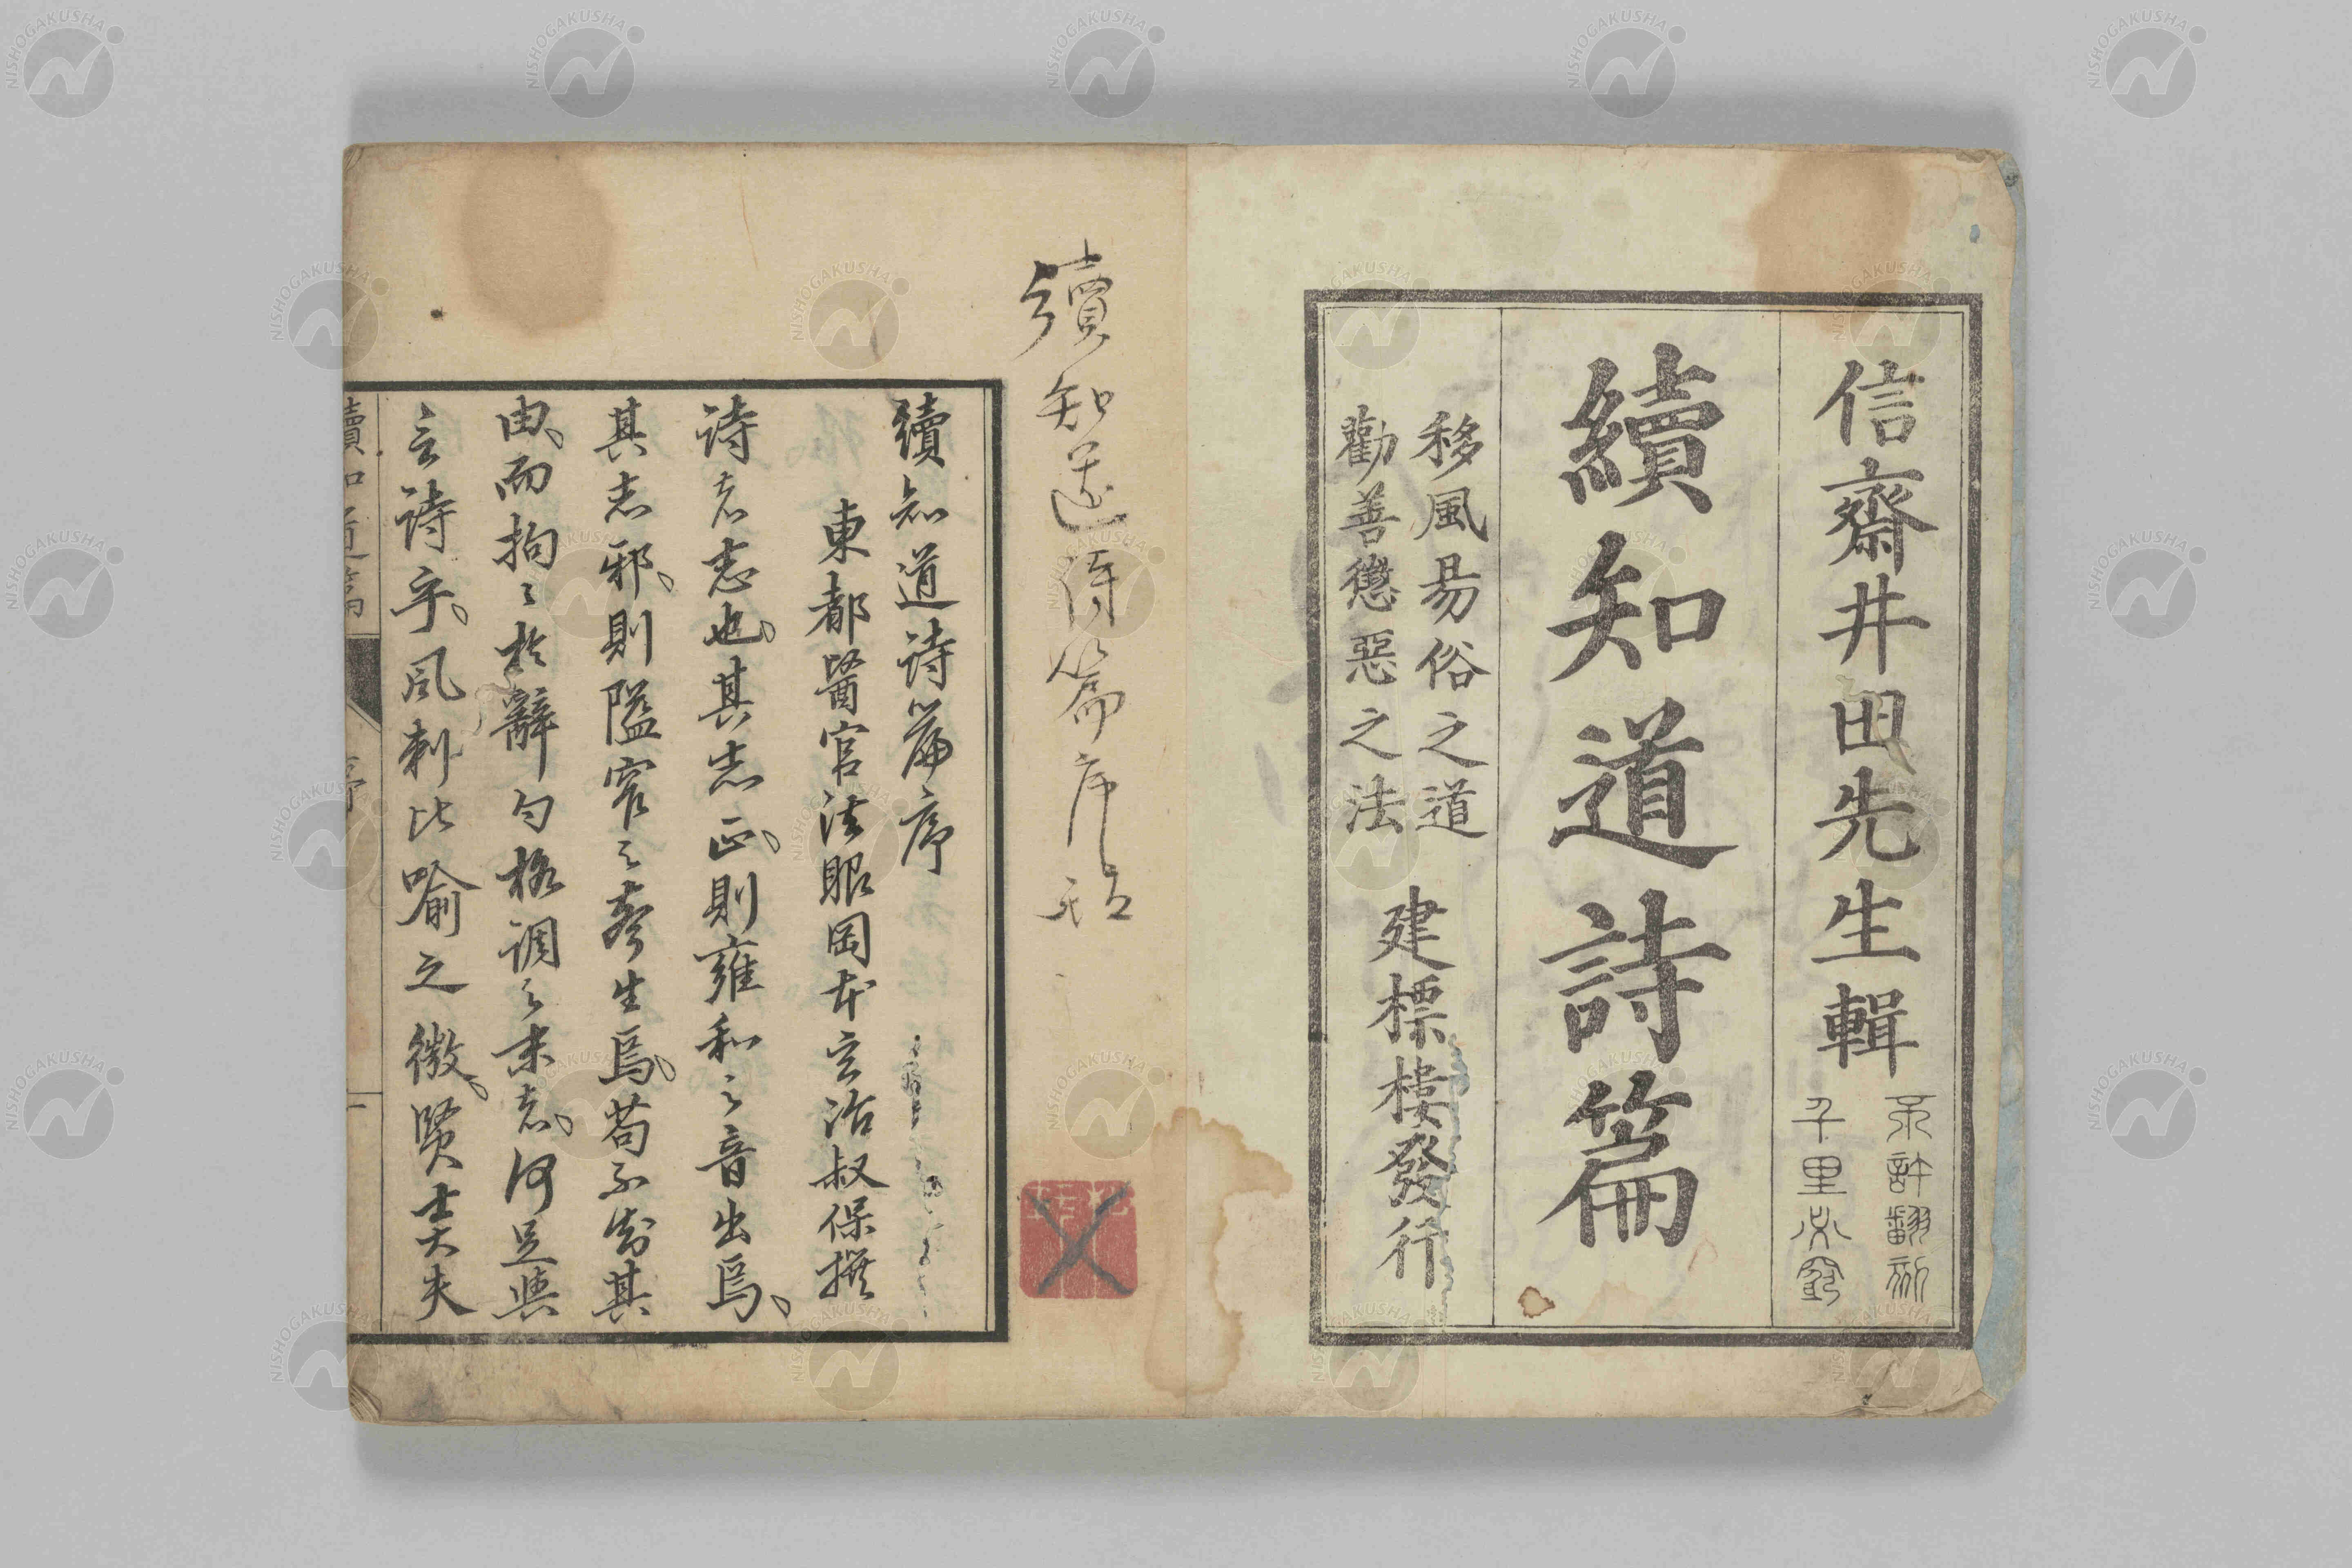 信齋井田先生輯
不許翻刻
千里必究
續知道詩篇
移風易俗之道
勸善懲惡之法
建標樓發行
續知道詩篇序
續知道詩篇序
東都醫官法眼岡本玄治叔保撰
詩者志也其志正則雍和之音出焉
其志邪則隘窄之聲生焉苟不知其
由而拘之於辭句格調之末者何足與
言詩乎風刺比喻之微賢士大夫
續知道篇
序
一
NISHOGAKUSHA